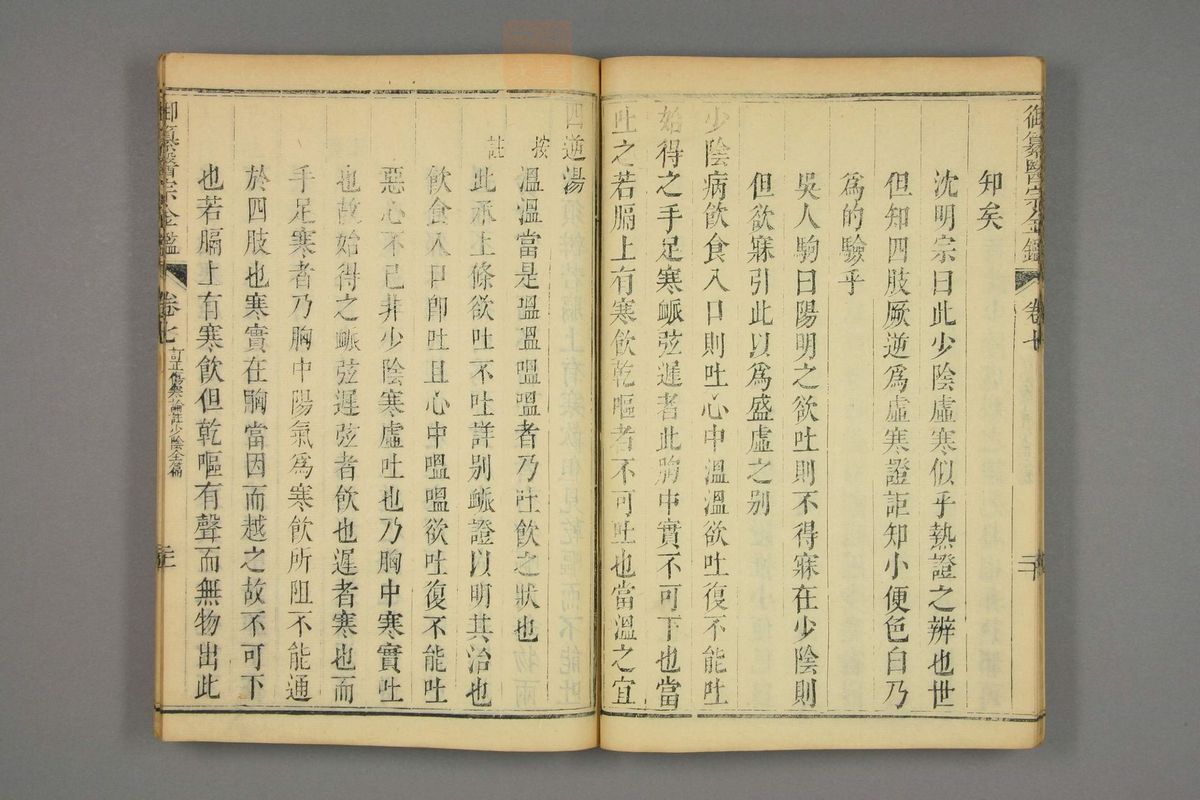 御纂醫宗金鑑 卷七
知矣
沈明宗曰此少陰虛寒似乎熱證之辨也世
但知四肢厥逆爲虛寒證詎知小便色白乃
爲的驗乎
吳人駒曰陽明之欲吐則不得寐在少陰則
但欲寐引此以爲盛虛之别
少陰病飲食入口則吐心中溫溫欲吐復不能吐
始得之手足寒脈弦遲者此胸中實不可下也當
吐之若膈上有寒飲乾嘔者不可吐也當溫之宜
四逆湯
按 溫溫當是嗢嗢嗢嗢者乃吐飲之狀也
註 此承上條欲吐不吐詳别脈證以明其治也
飲食入口即吐且心中嗢嗢欲吐復不能吐
惡心不已非少陰寒虛吐也乃胸中寒實吐
也故始得之脈弦遲弦者飲也遲者寒也而
手足寒者乃胸中陽氣爲寒飲所阻不能通
於四肢也寒實在胸當因而越之故不可下
也若膈上有寒飲但乾嘔有聲而無物出此
御纂醫宗金鑑 卷七 訂正傷寒論註少陰全篇